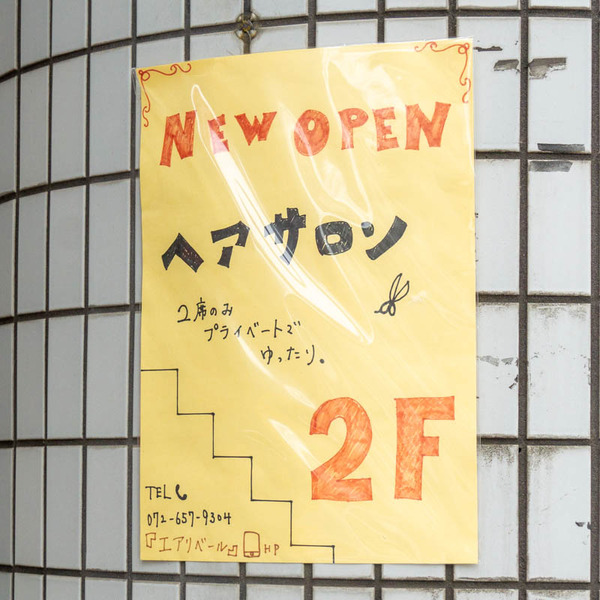 NEW OPEN
ヘアサロン
2席のみ
プライベートで
ゆったり。
2F
TEL
072-657-9304
『エアリベール』 HP